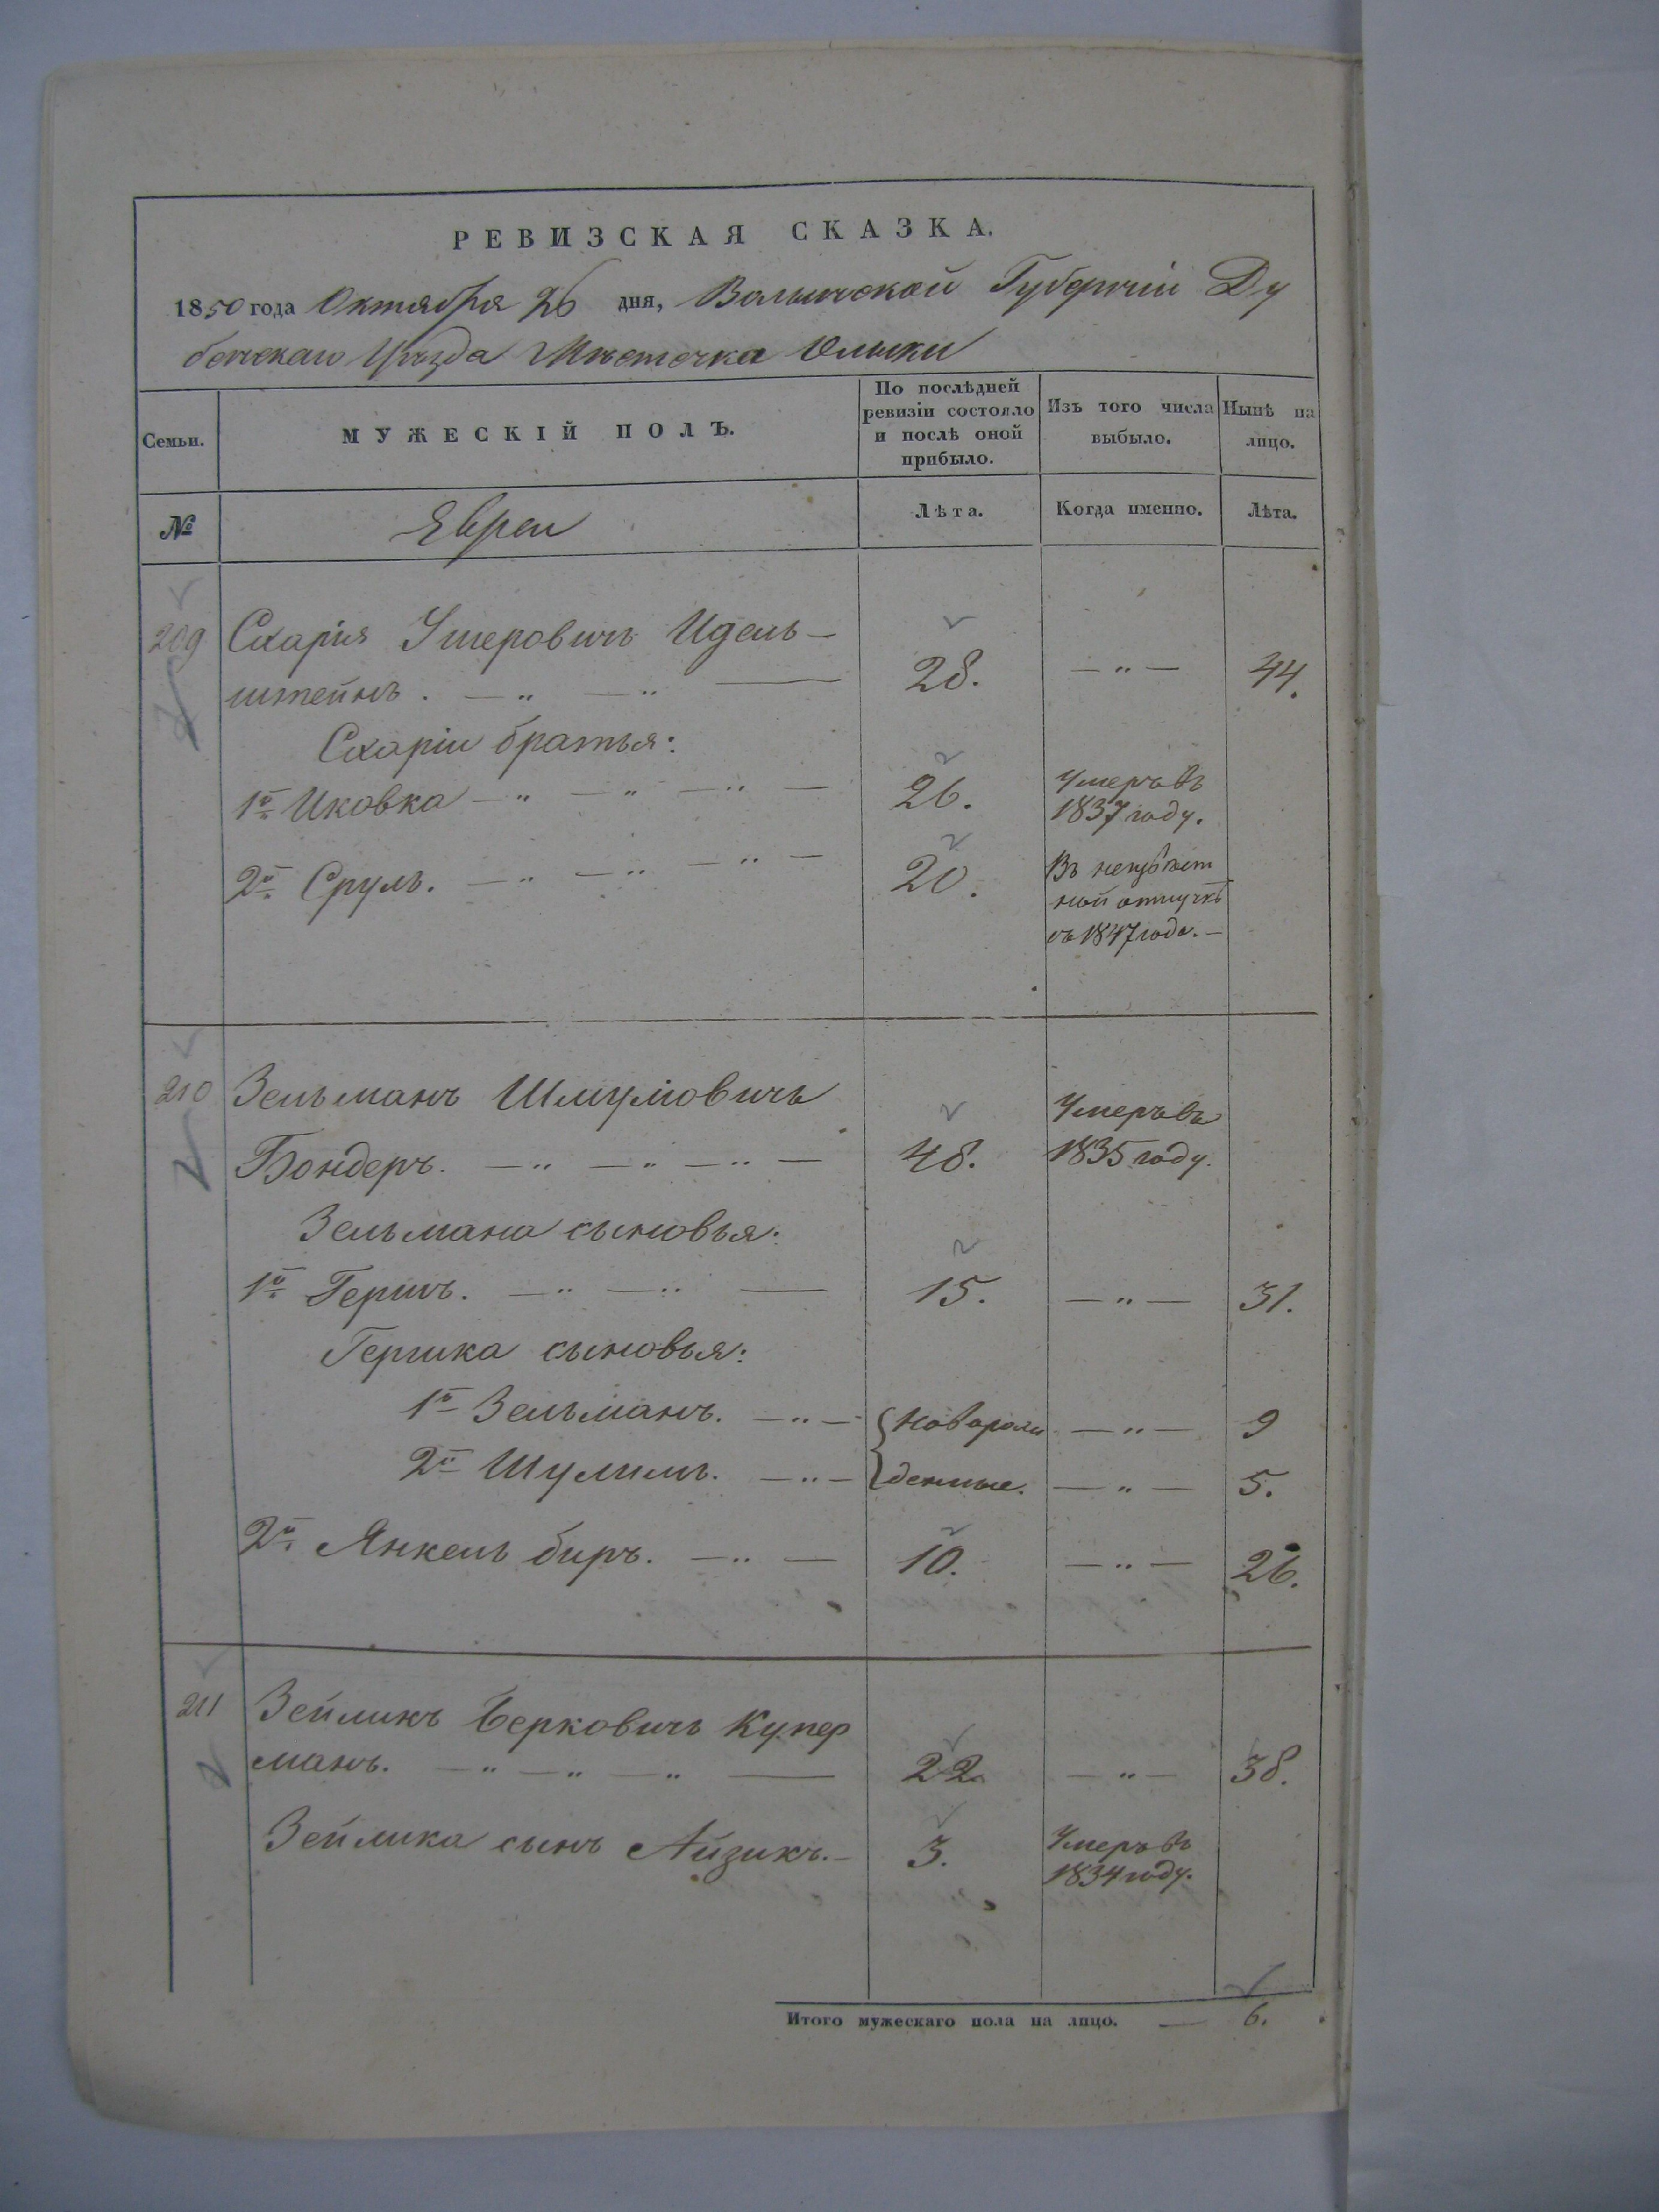 РЕВИЗСКАЯ СКАЗКА.
1850 года Октября 26 дня, Волынской Губерніи Ду
бенскаго Уѣзда Мѣстечка Олыки
Семьи.
МУЖЕСКІЙ ПОЛЪ.
По послѣдней ревизіи состояло и послѣ оной прибыло.
Изъ того числа выбыло.
Нынѣ на лицо.
№
Евреи
Лѣта.
Когда именно.
Лѣта.
209 Схарія Ушеровичъ Идель-
штейнъ. — " — " — 28. — " — 44.
Схаріи братья:
1й Иковка — " — " — " — 26. Умеръ въ
1837 году.
2й Сруль. — " — " — " — 20. Въ неизвѣст
ной отлучкѣ
съ 1847 года. —
210 Зельманъ Шмуловичъ
Бондеръ. — " — " — " — 48. Умеръ въ
1835 году.
Зельмана сыновья:
1й Гершъ. — " — " — 15. — " — 31.
Гершка сыновья:
1й Зельманъ. — " — { Новорож — " — 9
2й Шулимъ. — " — { денные. — " — 5.
2й Янкель беръ. — " — 10. — " — 26.
211 Зейликъ Берковичъ Купер
манъ. — " — " — " — 22. — " — 38.
Зейлика сынъ Айзикъ. — 3. Умеръ въ
1834 году.
Итого мужескаго пола на лицо. — 6.